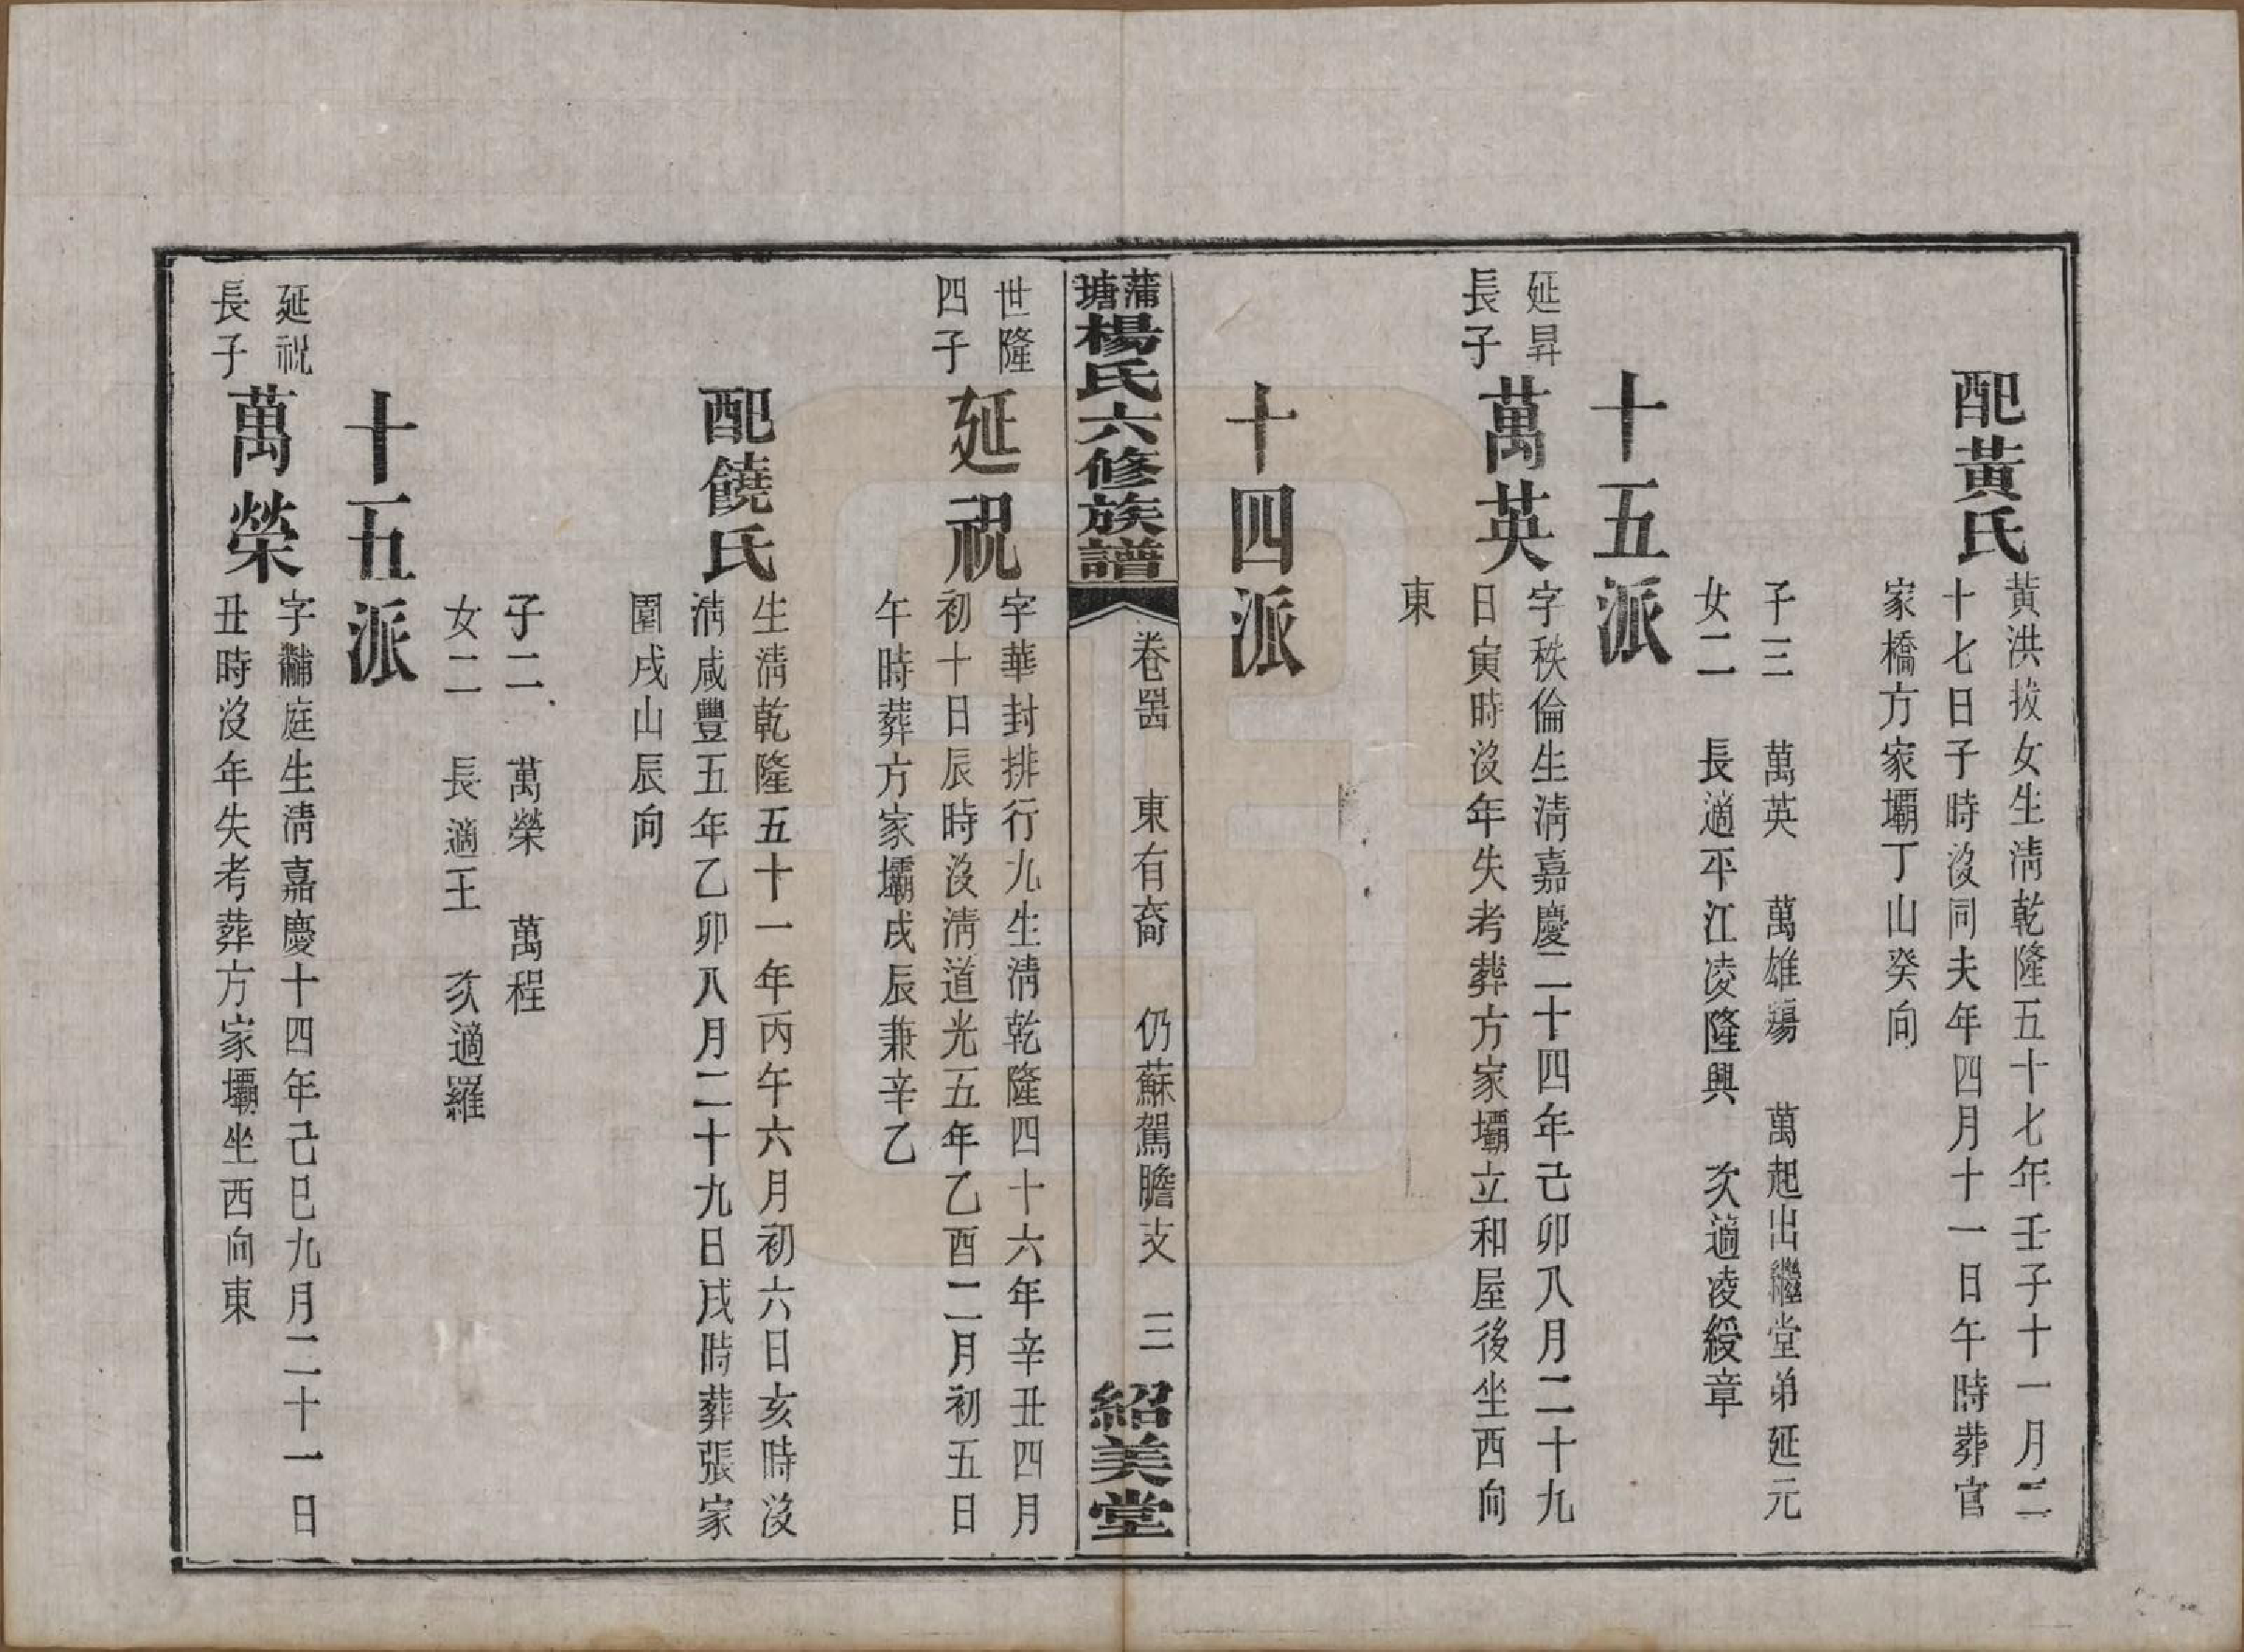 配黃氏
黃洪拔女生淸乾隆五十七年壬子十一月二
十七日子時沒同夫年四月十一日午時葬官
家橋方家壩丁山癸向
子三　萬英　萬雄殤　萬起出繼堂弟延元
女二　長適平江凌隆興　次適凌綬章
十五派
延昇
長子
萬英
字秩倫生淸嘉慶二十四年己卯八月二十九
日寅時沒年失考葬方家壩立和屋後坐西向
東
十四派
蒲塘楊氏六修族譜
卷四　東有裔　仍蘇駕膽支　三
紹美堂
世隆
四子
延祝
字華封排行九生淸乾隆四十六年辛丑四月
初十日辰時沒淸道光五年乙酉二月初五日
午時葬方家壩戌辰兼辛乙
配饒氏
生淸乾隆五十一年丙午六月初六日亥時沒
淸咸豐五年乙卯八月二十九日戌時葬張家
圍戌山辰向
子二　萬榮　萬程
女二　長適王　次適羅
十五派
延祝
長子
萬榮
字黼庭生淸嘉慶十四年己巳九月二十一日
丑時沒年失考葬方家壩坐西向東